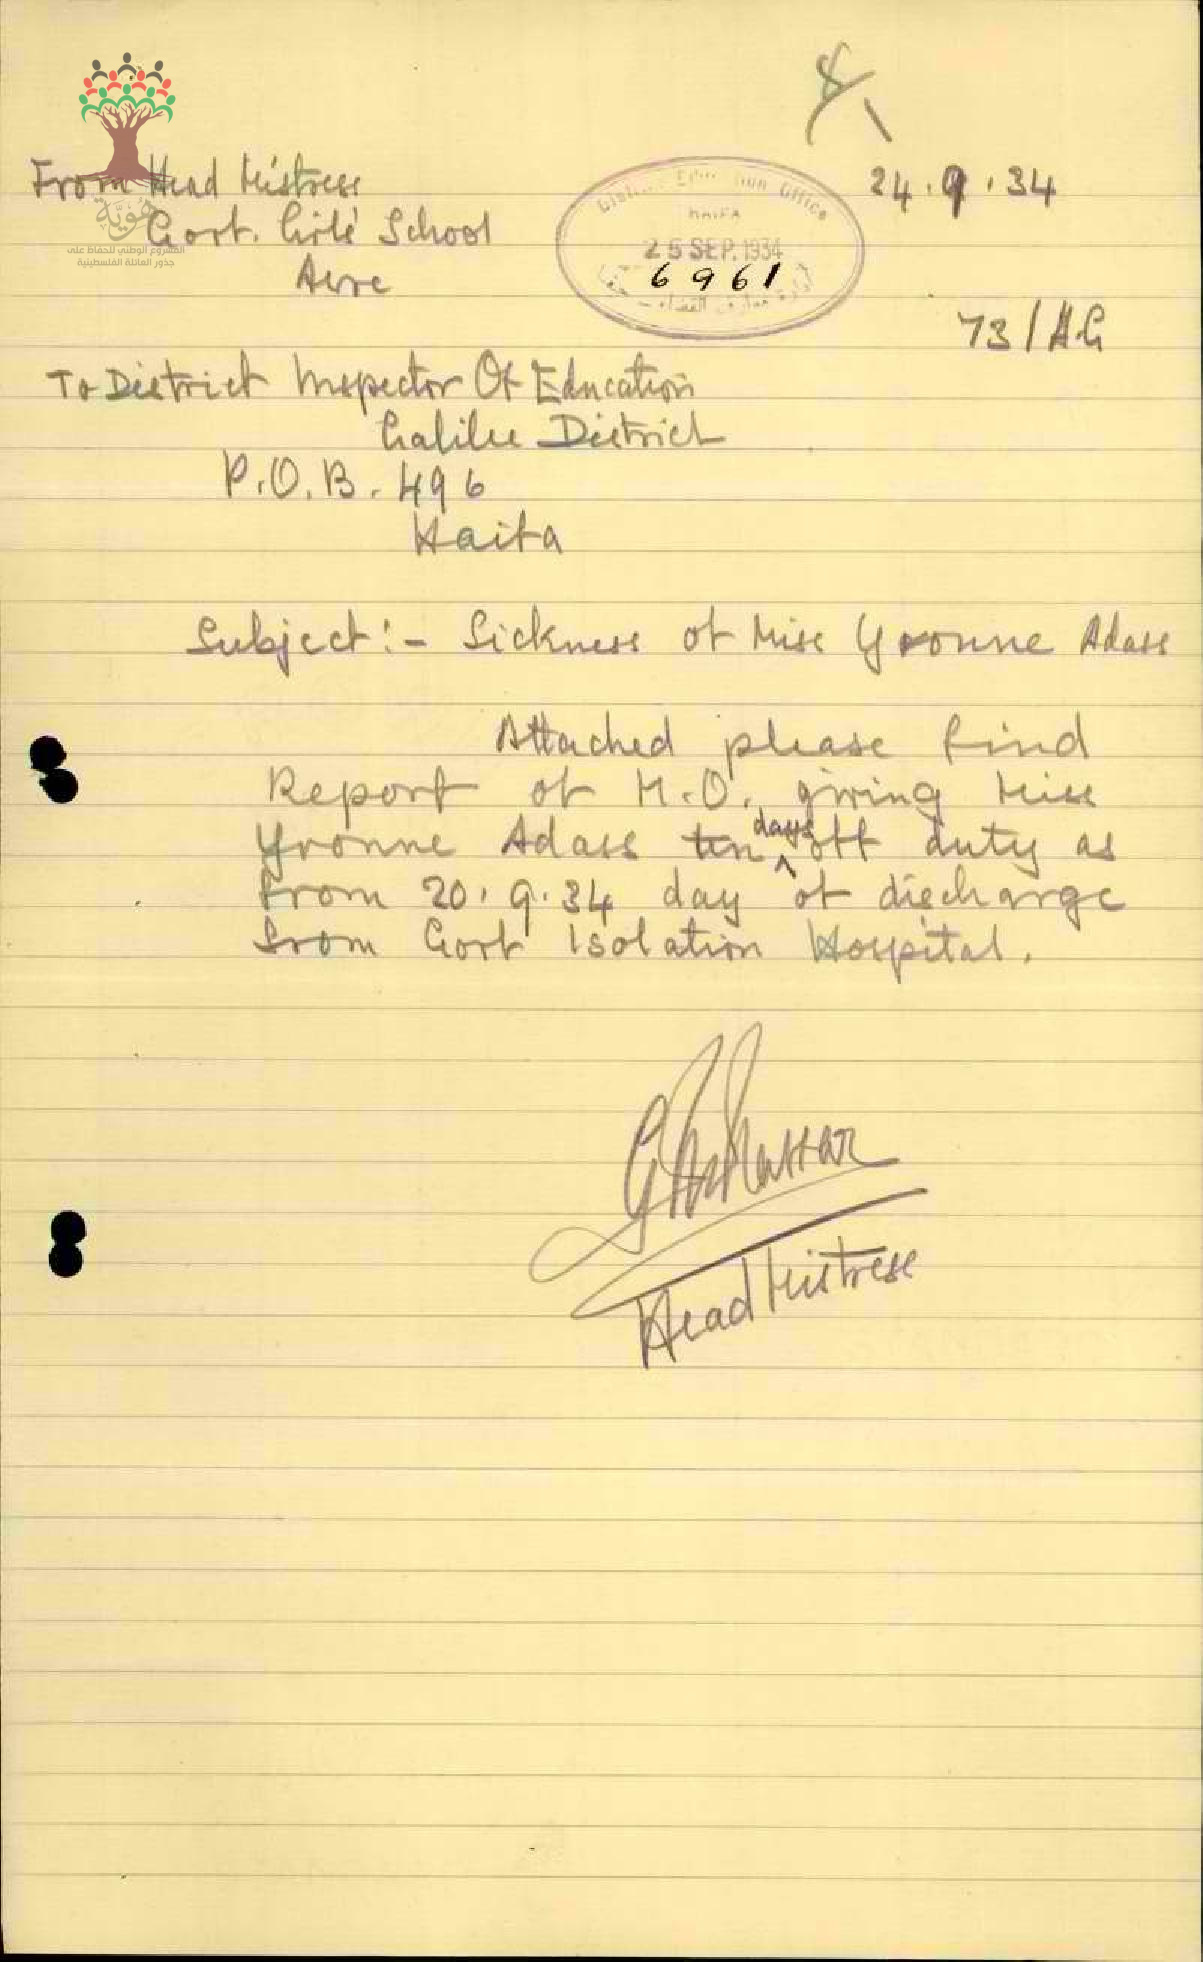 8/1
24.9.34
From Head Mistress
Govt. Girls' School
Acre
هُوِيَّة
المشروع الوطني للحفاظ على
جذور العائلة الفلسطينية
District Education Office
HAIFA
25 SEP. 1934
6961
ادارة معارف القضاء
73/A.G
To District Inspector Of Education
Galilee District
P.O.B. 496
Haifa
Subject:- Sickness of Miss Yvonne Adass
Attached please find
Report of M.O. giving Miss
Yvonne Adass ten days off duty as
from 20.9.34 day of discharge
from Govt Isolation Hospital.
Head Mistress